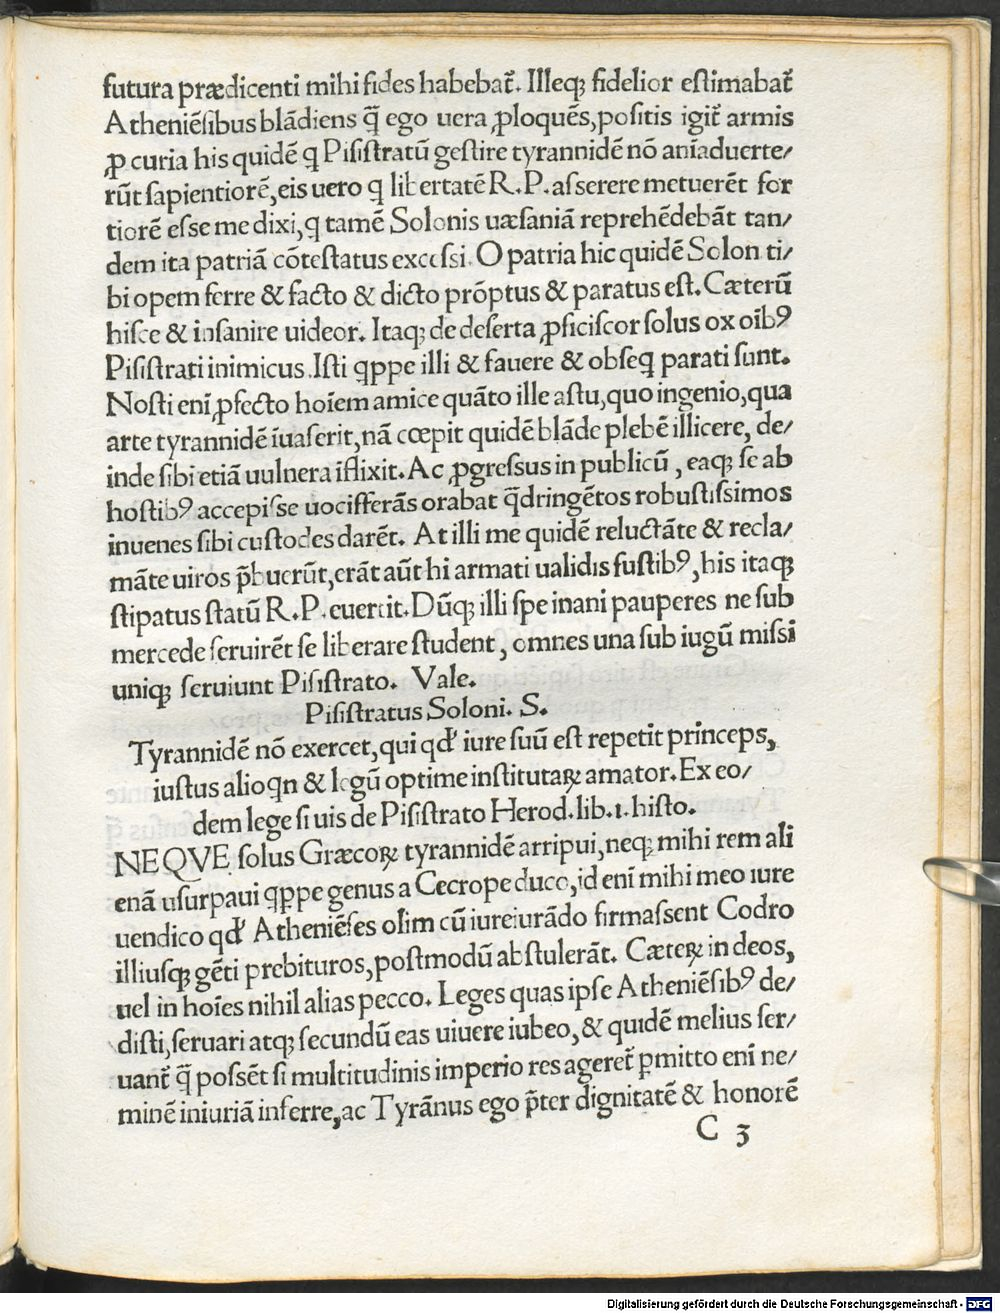 futura prædicenti mihi fides habebat᷑. Illeqꝫ fidelior estimabat᷑
Atheniẽsibus blãdiens q̃ ego uera ꝓloquẽs, positis igit᷑ armis
ꝓ curia his quidẽ ꝗ Pisistratũ gestire tyrannidẽ nõ aniaduerte/
rũt sapientiorẽ, eis uero ꝗ libertatẽ R.P. asserere metuerẽt for
tiorẽ esse me dixi, ꝗ tamẽ Solonis uæsaniã reprehẽdebãt tan/
dem ita patriã cõtestatus excessi. O patria hic quidẽ Solon ti/
bi opem ferre & facto & dicto prõptus & paratus est. Cæterũ
hisce & insanire uideor. Itaqꝫ de deserta ꝓficiscor solus ox oĩbꝰ
Pisistrati inimicus. Isti ꝗppe illi & fauere & obseꝗ parati sunt.
Nosti enĩ ꝓfecto hoĩem amice quãto ille astu, quo ingenio, qua
arte tyrannidẽ ĩuaserit, nã cœpit quidẽ blãde plebẽ illicere, de/
inde sibi etiã uulnera ĩflixit. Ac ꝓgressus in publicũ, eaqꝫ se ab
hostibꝰ accepisse uocifferãs orabat q̃dringẽtos robustissimos
inuenes sibi custodes darẽt. At illi me quidẽ reluctãte & recla/
mãte uiros p̃buerũt, erãt aũt hi armati ualidis fustibꝰ, his itaqꝫ
stipatus statũ R.P. euertit. Dũqꝫ illi spe inani pauperes ne sub
mercede seruirẽt se liberare student, omnes una sub iugũ missi
uniqꝫ seruiunt Pisistrato. Vale.
Pisistratus Soloni. S.
Tyrannidẽ nõ exercet, qui qd' iure suũ est repetit princeps,
iustus alioꝗn & legũ optime institutaꝝ amator. Ex eo/
dem lege si uis de Pisistrato Herod. lib. 1. histo.
NEQVE solus Græcoꝝ tyrannidẽ arripui, neqꝫ mihi rem ali
enã usurpaui ꝗppe genus a Cecrope duco, id enĩ mihi meo iure
uendico qd' Atheniẽses olim cũ iureiurãdo firmassent Codro
illiusqꝫ gẽti prebituros, postmodũ abstulerãt. Cæteꝝ in deos,
uel in hoĩes nihil alias pecco. Leges quas ipse Atheniẽsibꝰ de/
disti, seruari atqꝫ secundũ eas uiuere iubeo, & quidẽ melius ser/
uant᷑ q̃ possẽt si multitudinis imperio res ageret᷑ ꝑmitto enĩ ne/
minẽ iniuriã inferre, ac Tyrãnus ego p̃ter dignitatẽ & honorẽ
C 3
Digitalisierung gefördert durch die Deutsche Forschungsgemeinschaft - DFG